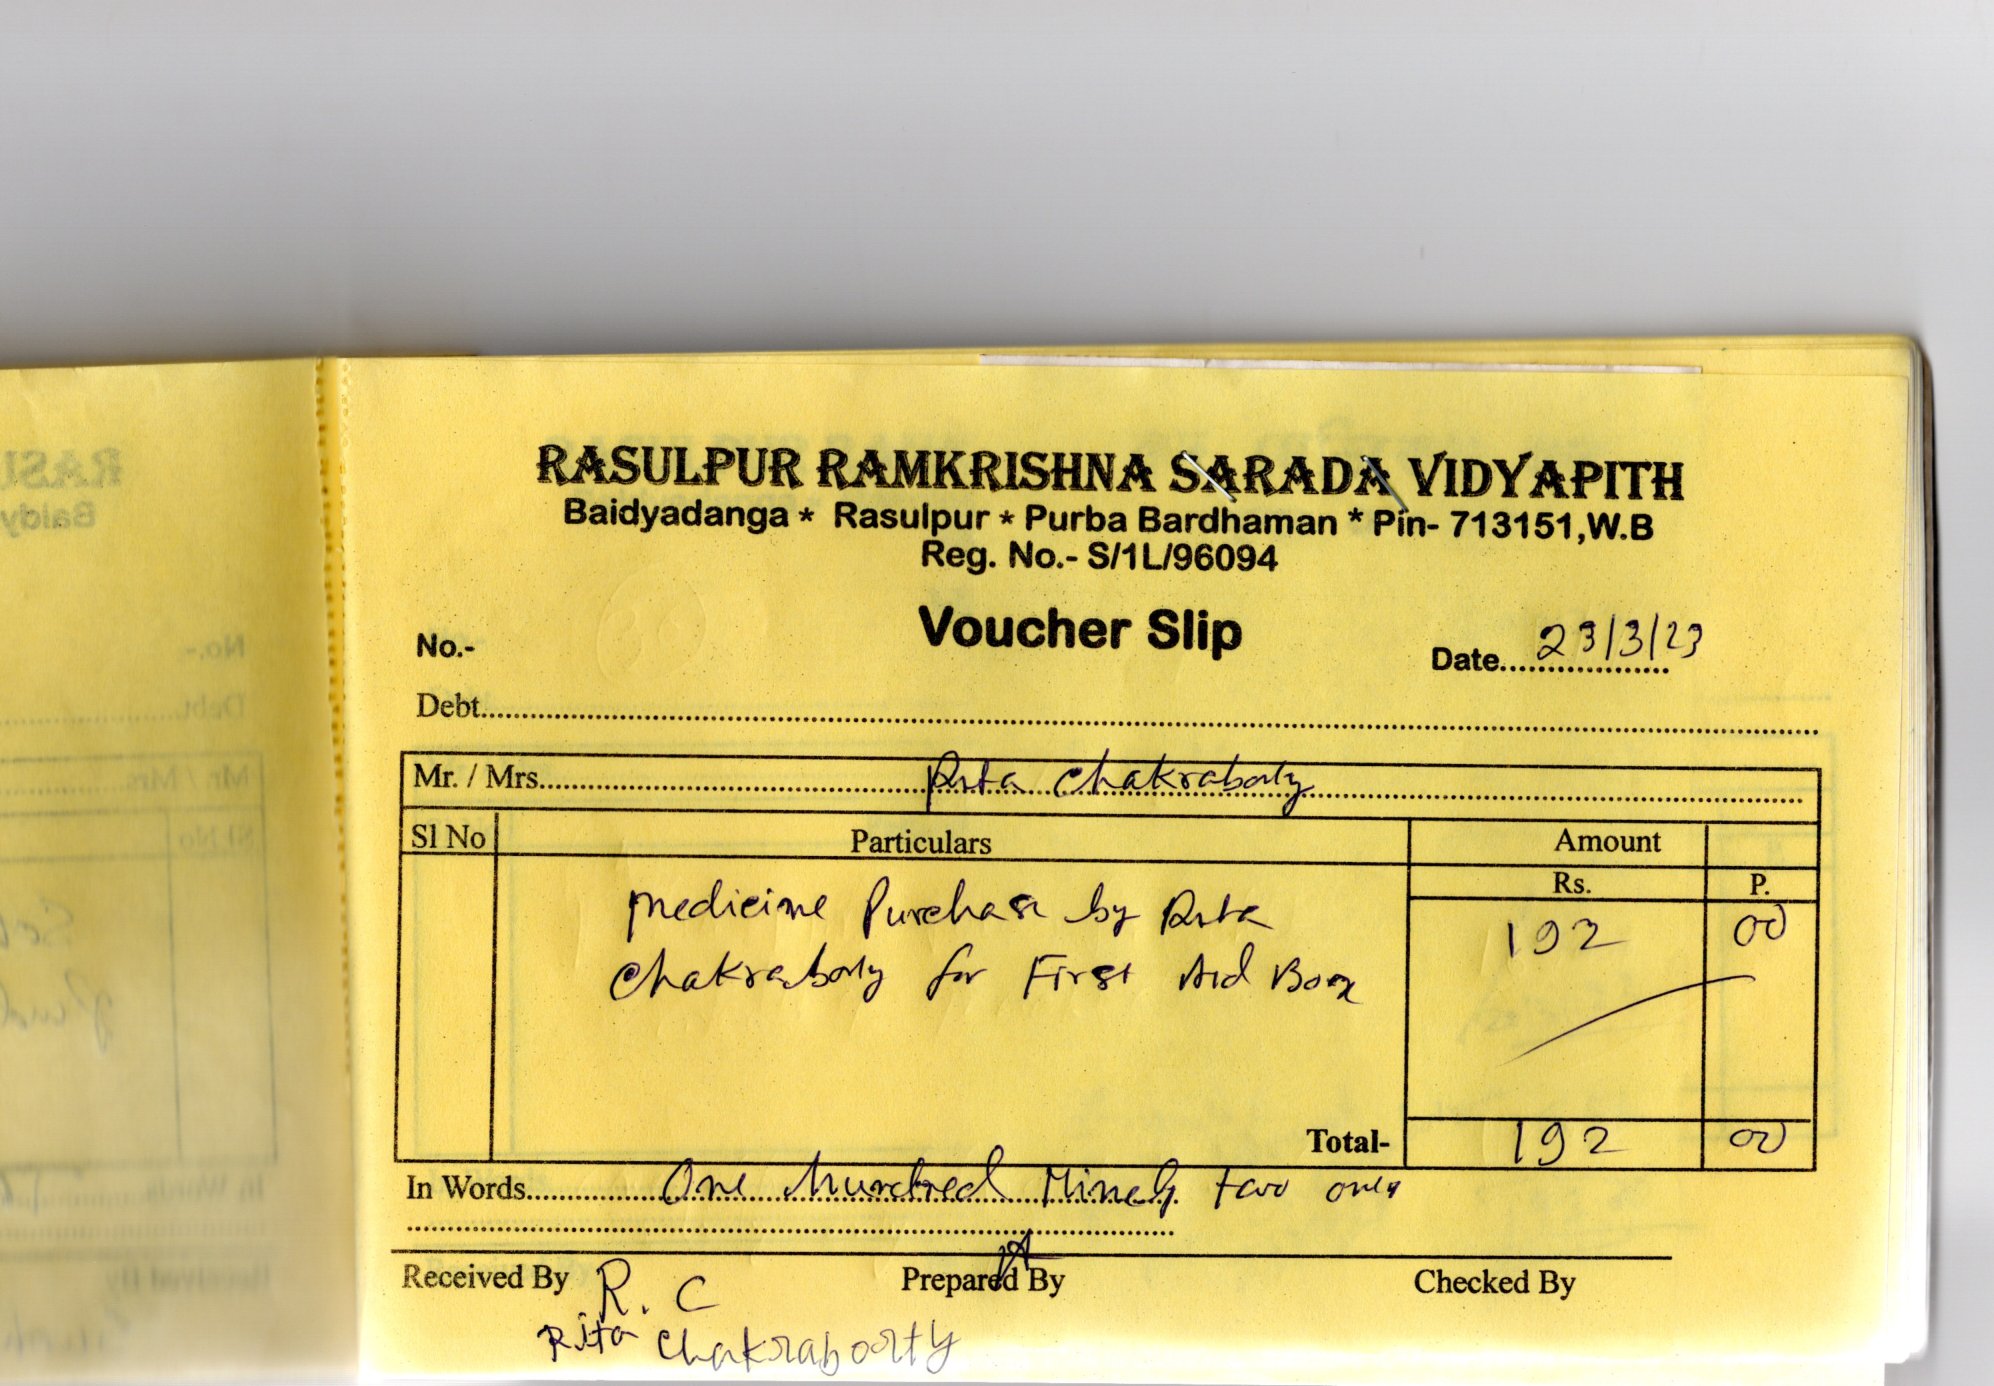 RASULPUR RAMKRISHNA SARADA VIDYAPITH
Baidyadanga * Rasulpur * Purba Bardhaman * Pin- 713151,W.B
Reg. No.- S/1L/96094
Voucher Slip
No.-
Date......23/3/23
Debt
Mr. / Mrs. Rita Chakraborty
Sl No Particulars Amount
Rs. P.
medicine Purchase by Rita 192 00
Chakraborty for First Aid Box
Total- 192 00
In Words One hundred Ninety two only
Received By R. C Prepared By Checked By
Rita Chakraborty